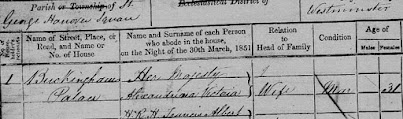 Parish or Township of St.
Ecclesiastical District of
George Hanover Square
Westminster
Name of Street, Place, or Road, and Name or No. of House
Name and Surname of each Person who abode in the house, on the Night of the 30th March, 1851
Relation to Head of Family
Condition
Age of
Males
Females
1
Buckingham
Her Majesty
Palace
Alexandrina Victoria
Wife
Mar
31
H.R.H. Francis Albert